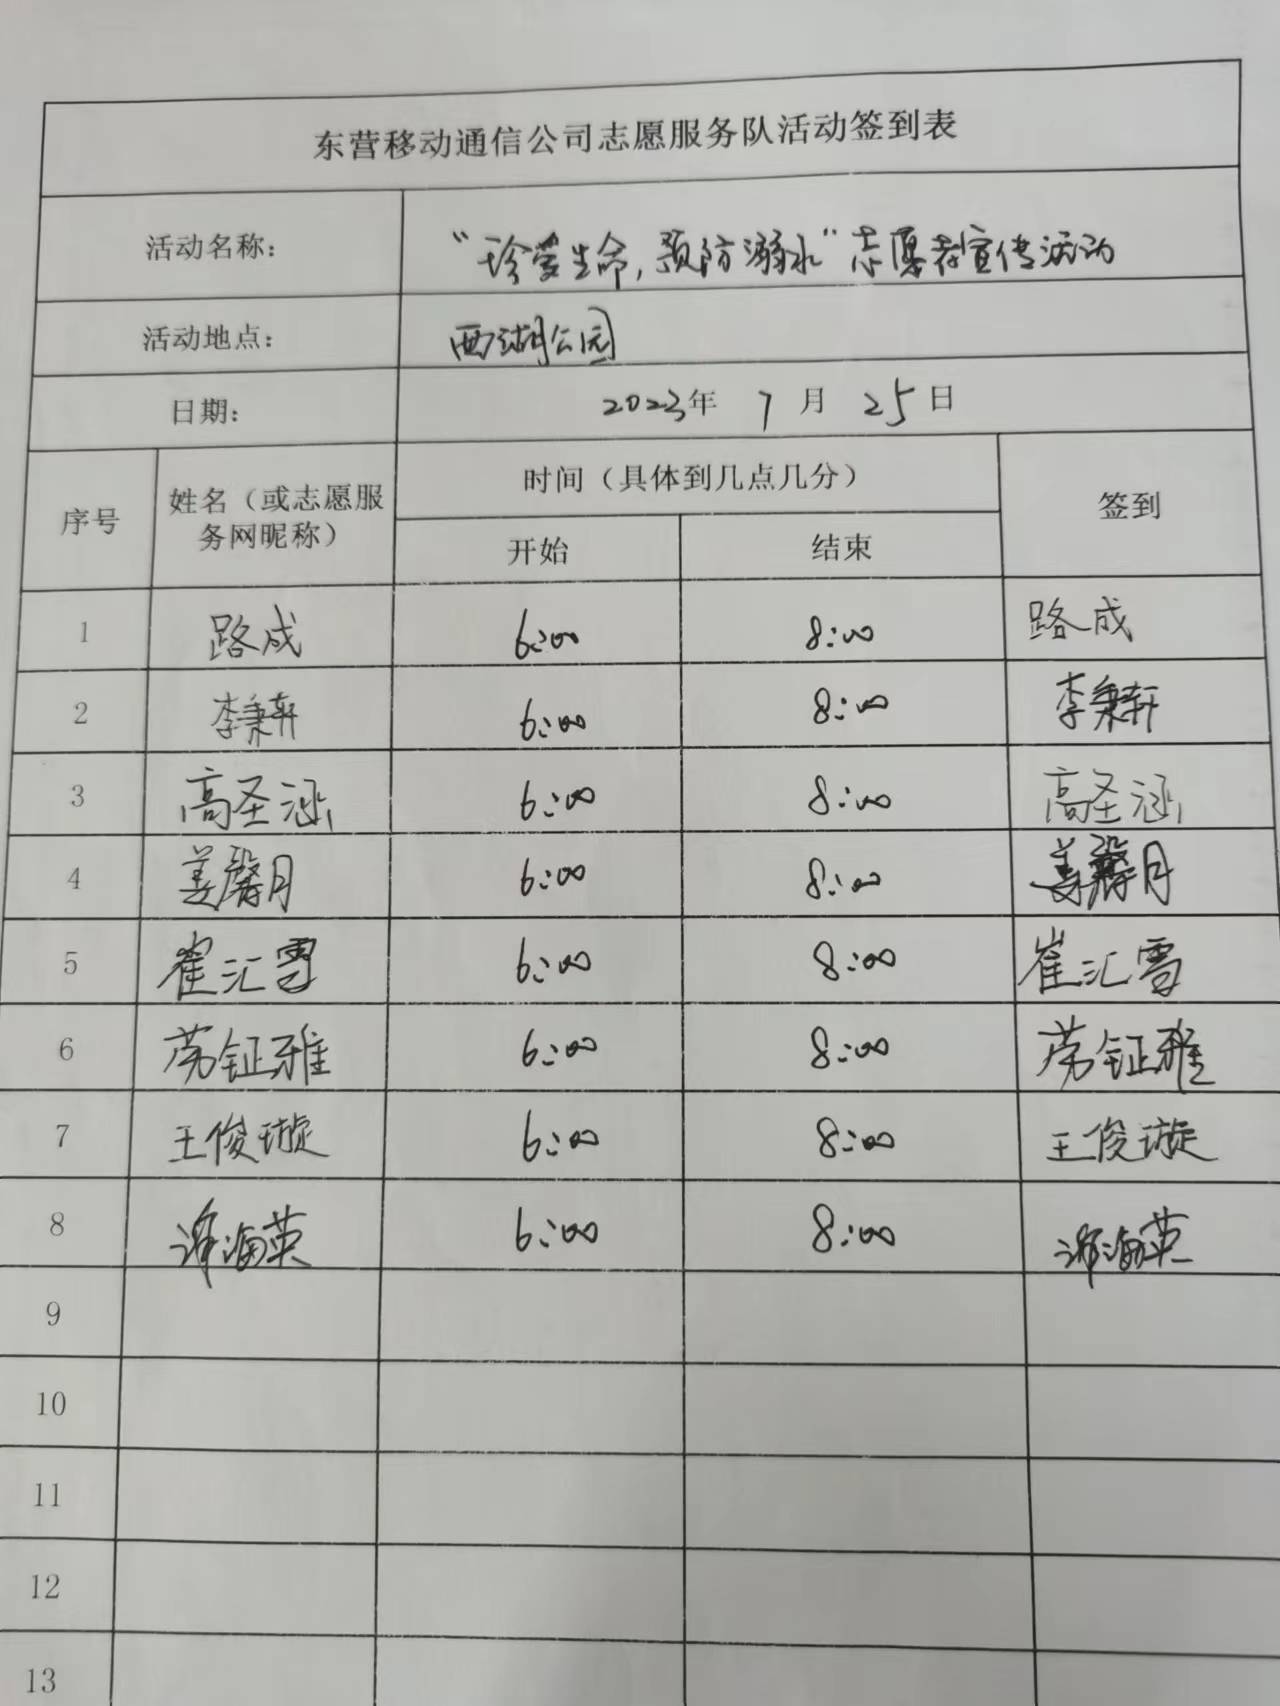 东营移动通信公司志愿服务队活动签到表
活动名称： “珍爱生命，预防溺水”志愿者宣传活动
活动地点： 西湖公园
日期： 2023年 7月 25日
序号 姓名（或志愿服务网昵称） 时间（具体到几点几分） 签到
开始 结束
1 路成 6:00 8:00 路成
2 李秉轩 6:00 8:00 李秉轩
3 高圣涵 6:00 8:00 高圣涵
4 姜馨月 6:00 8:00 姜馨月
5 崔汇雪 6:00 8:00 崔汇雪
6 劳钲雅 6:00 8:00 劳钲雅
7 王俊璇 6:00 8:00 王俊璇
8 海英 6:00 8:00 海英
9
10
11
12
13